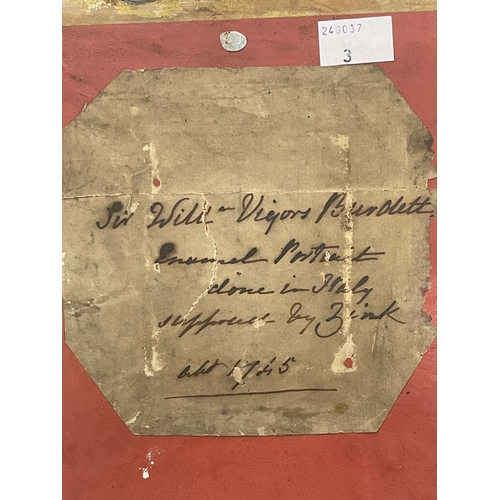 240037
3
Sir Will^m Vigors Burdett
Enamel Portrait
done in Italy
suppose by Zink
abt 1745